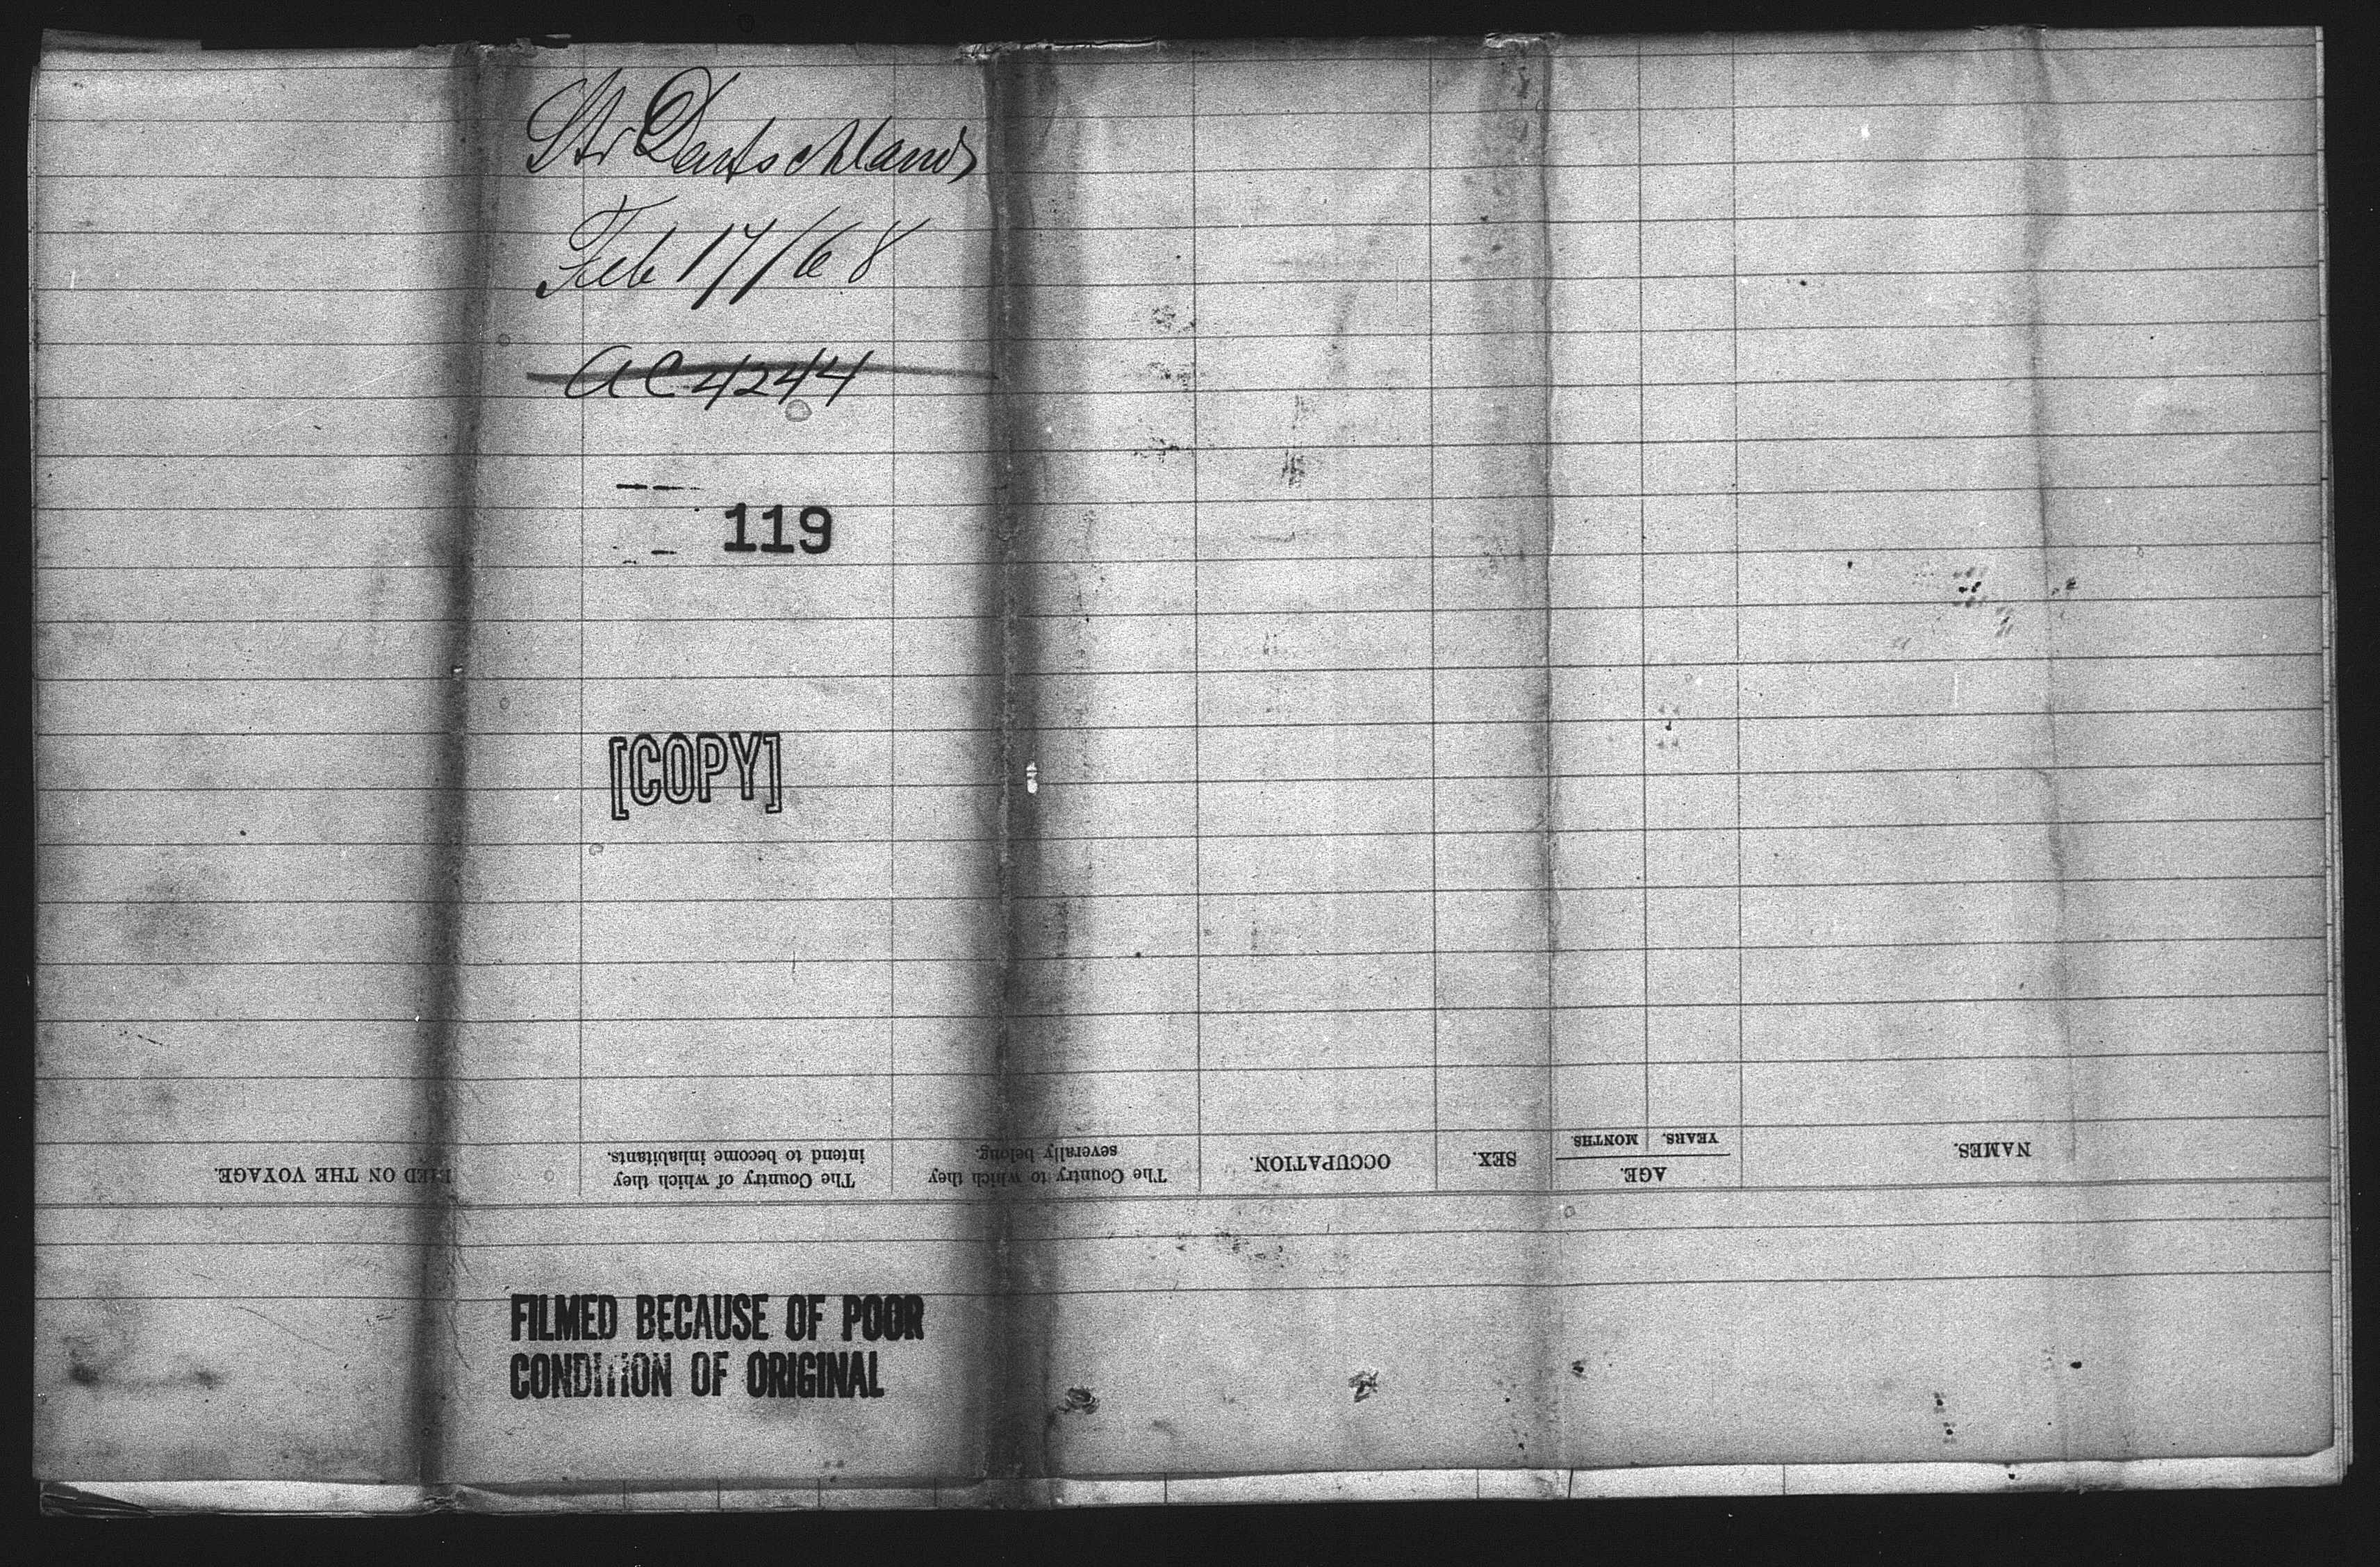 Str Deutschland
Feb 17/68
AC 4244
119
[COPY]
FILMED BECAUSE OF POOR
CONDITION OF ORIGINAL
NAMES.
AGE.
YEARS.
MONTHS.
SEX.
OCCUPATION.
The Country to which they
severally belong.
The Country of which they
intend to become inhabitants.
DIED ON THE VOYAGE.